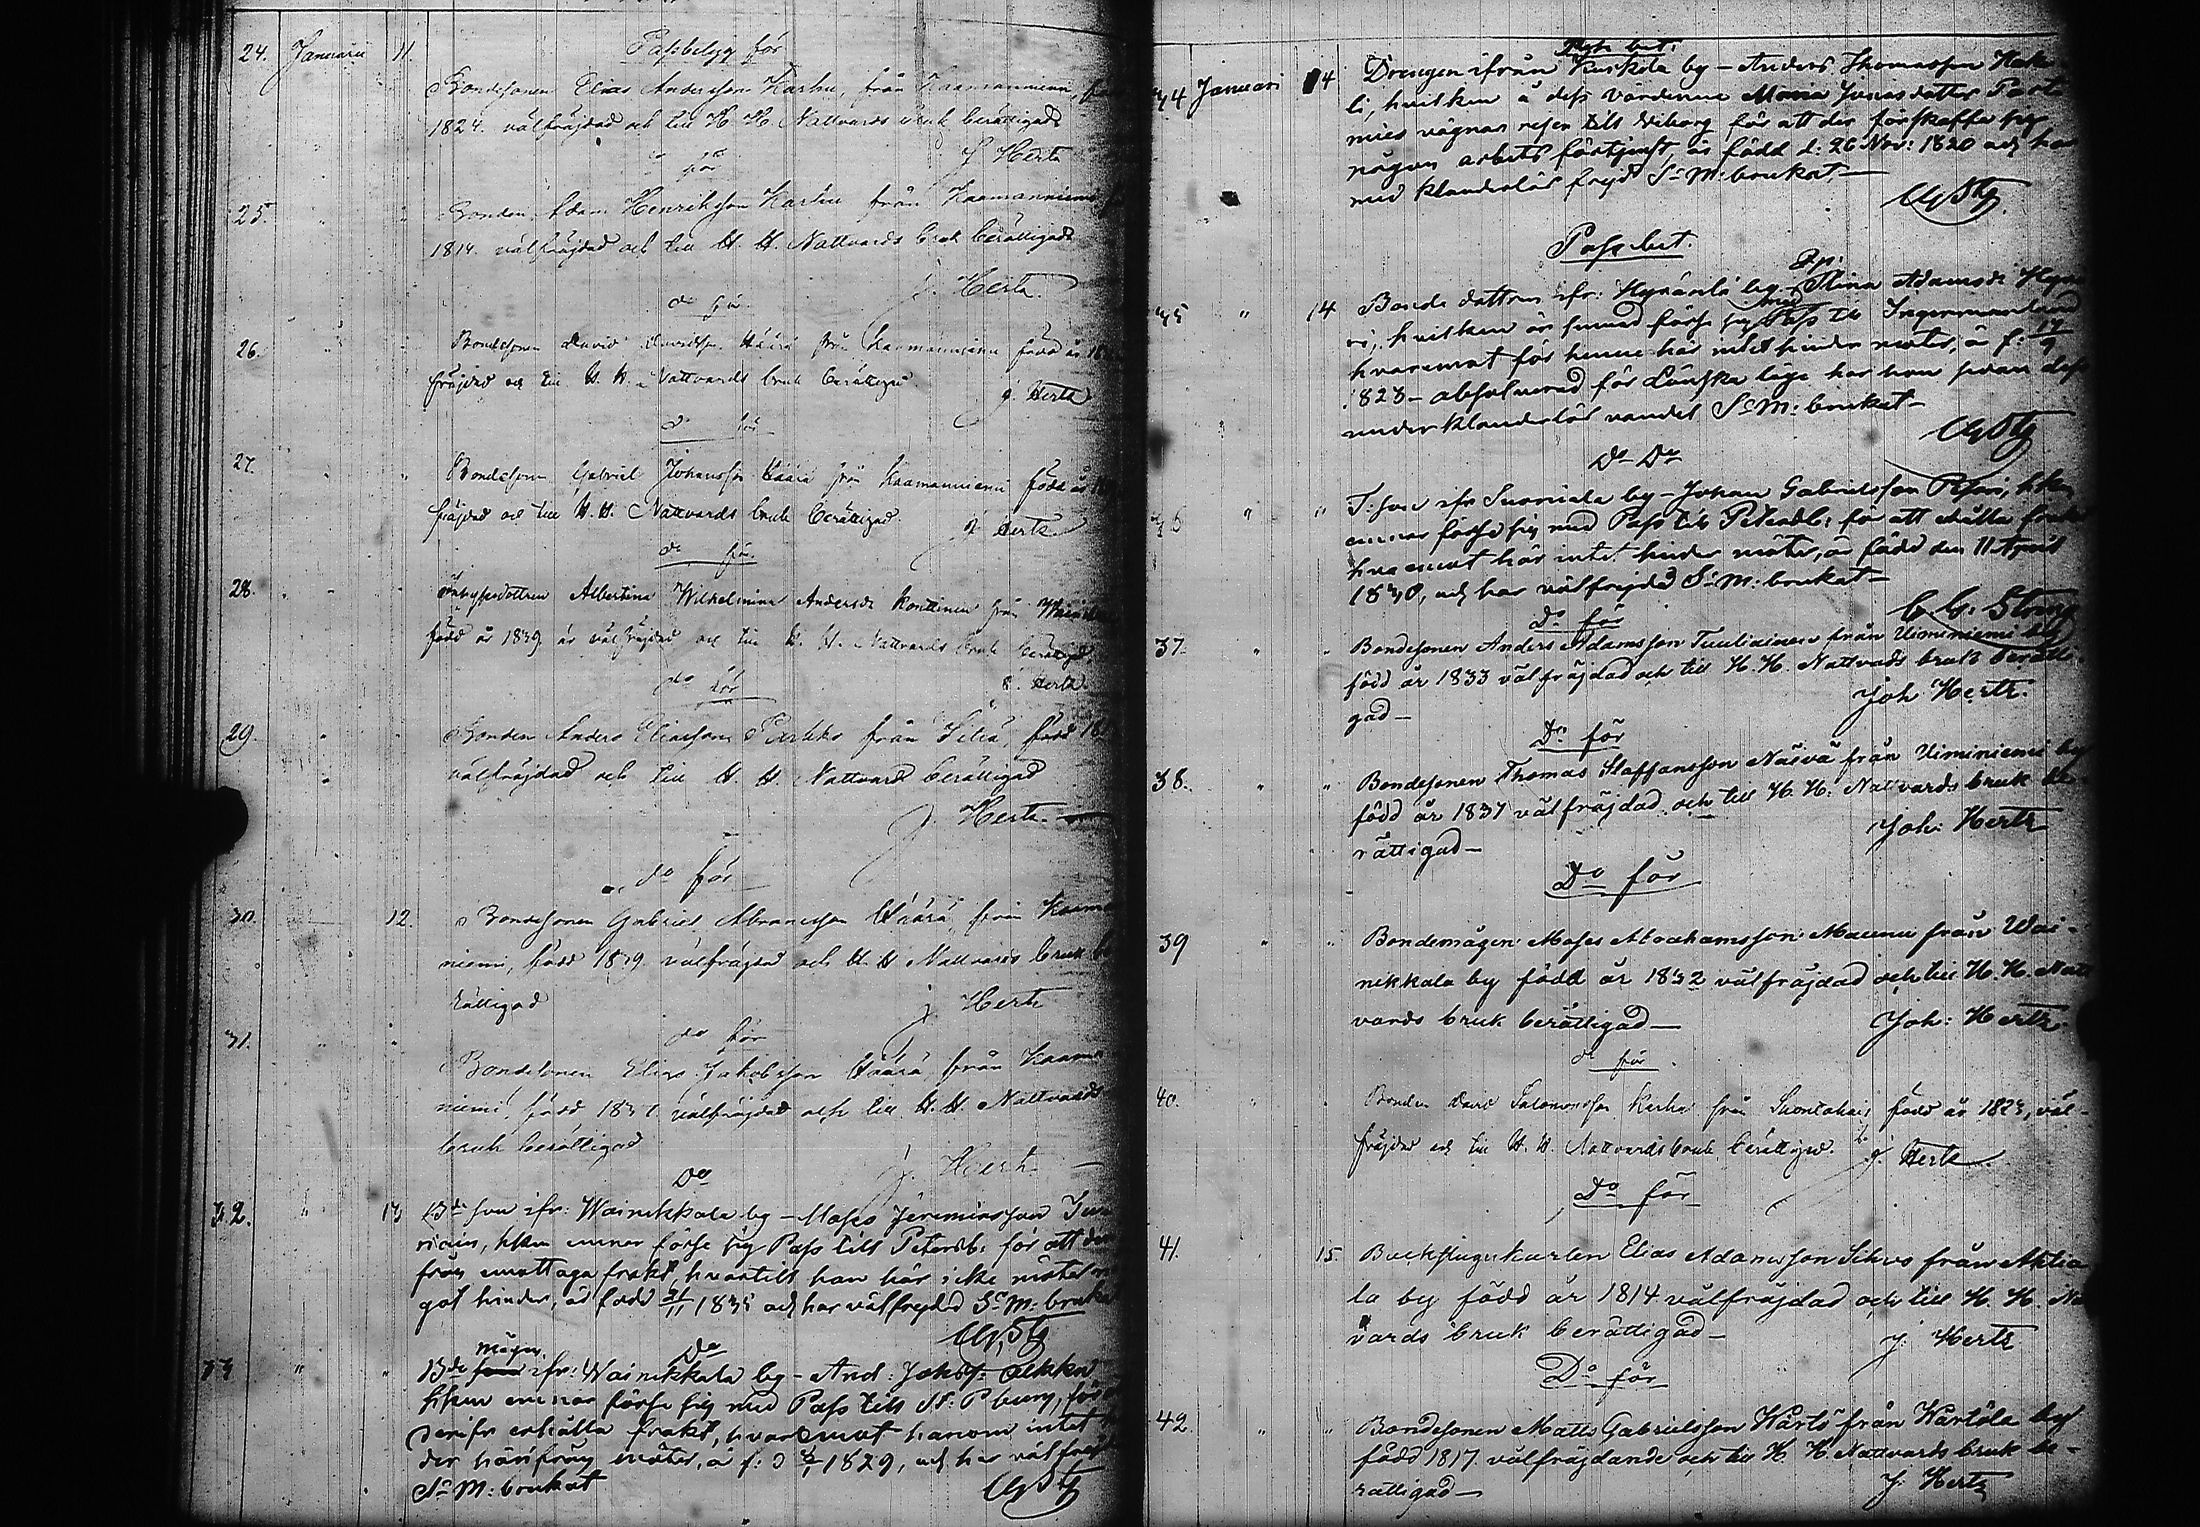 24. Januari 11. Passbetyg för
Bondesonen Elias Andersson Karhu, från Kaamanniemi,
1824. välfräjdad och till H. H. Nattvards bruk berättigad
J Hertz
do för
25. Bonden Adam Henriksson Karhu från Kaamanniemi
1814. välfräjdad och till H. H. Nattvards bruk berättigad
J. Hertz.
do för
26. Bondesonen David Davidsson Häärä från Kaamanniemi född år
fräjdad och till H. H. Nattvards bruk berättigad
J. Hertz
do för
27. Bondesonen Gabriel Johansson Häärä från Kaamanniemi född år
fräjdad och till H. H. Nattvards bruk berättigad.
J. Hertz
do för
28. Albertina Wilhelmina Andersdr Konttinen från
född år 1839 är välfräjdad och till H. H. Nattvards bruk berättigad
J. Hertz.
do för
29. Bonden Anders Eliasson Parkko från född
välfräjdad och till H. H. Nattvard berättigad
J. Hertz.
do för
30. 12. Bondesonen Gabriel Abramsson Häärä, från Kaama
niemi, född 1839 välfräjdad och H. H. Nattvards bruk be
rättigad
J. Hertz
do för
31. Bondesonen Elias Jakobsson Häärä från Kaama
niemi, född välfräjdad och till H. H. Nattvards
bruk berättigad
J. Hertz
Do
32. " 13 Bde son ifr: Wainikkala by - Moses Jeremiasson
hken ernar förse sig Pass till Petersb: för att
emottaga frakt, hvartill han här icke möter
got hinder, är född 1835 och har välfrejdad S: M: brukat
Do
33 " " Bde mågen ifr: Wainikkala by - And: Jakobss:
hken ernar förse sig med Pass till St: Pburg, för
derifr erhålla frakt, hvaremot honom intet
der härifrån möter, är f: d 1829, och har välfrejd
S: M: brukat
Pass bet.
34 Januari 14 Drengen ifrån Kuskola by - Anders Thomasson
li, hvilken å dess Vårdarinna Maria Jonasdotter
vägnar reser till Wiborg för att der förskaffa sig
någon arbets förtjenst, är född d: 26 Nov: 1820 och har
med klanderlös frejd S: M: brukat.
Pass bet.
35 " 14 Bonde dottren ifr: by - Stina Adamsdr
hvilken är sinnad förse sig med Pass till Ingermanland
hvaremot för henne här intet hinder möter, är f:
1823 - absolverad för Lönska läge har hon sedan dess
under klanderlös vandel S: M: brukat -
Do Do
36 " " T: son ifr Suoniala by - Johan Gabrielsson hken
ernar förse sig med Pass till Petersb: för att erhålla
hvaremot här intet hinder möter, är född den 11 April
1830, och har välfrejdad S: M: brukat -
Do för
37. " " Bondesonen Anders Adamsson Tuuliainen från Uiminiemi by
född år 1833 välfräjdad och till H. H. Nattvards bruk berätti-
gad -
Joh Hertz.
Do för
38. " " Bondesonen Thomas Staffansson Näivä från Uiminiemi by
född år 1837 välfräjdad och till H. H. Nattvards bruk be-
rättigad -
Joh: Hertz
Do för
39 " " Bondemågen Moses Abrahamsson Maunu från Wai-
nikkala by född år 1832 välfräjdad och till H. H. Natt
vards bruk berättigad -
Joh: Hertz.
do för
40. " " Bonden David Salomonsson Karhu från född år 1823, väl-
fräjdad och till H. H. Nattvards bruk berättigad.
J. Hertz
Do för
41. " 15. Backstugukarlen Elias Adamsson från Ahtia
la by född år 1814 välfräjdad och till H. H. Na
vards bruk berättigad -
J. Hertz
Do för
42. " " Bondesonen Matts Gabrielsson Wärtö från Wärtölä by
född 1817 välfräjdande och till H. H. Nattvards bruk be-
rattigad -
J. Hertz